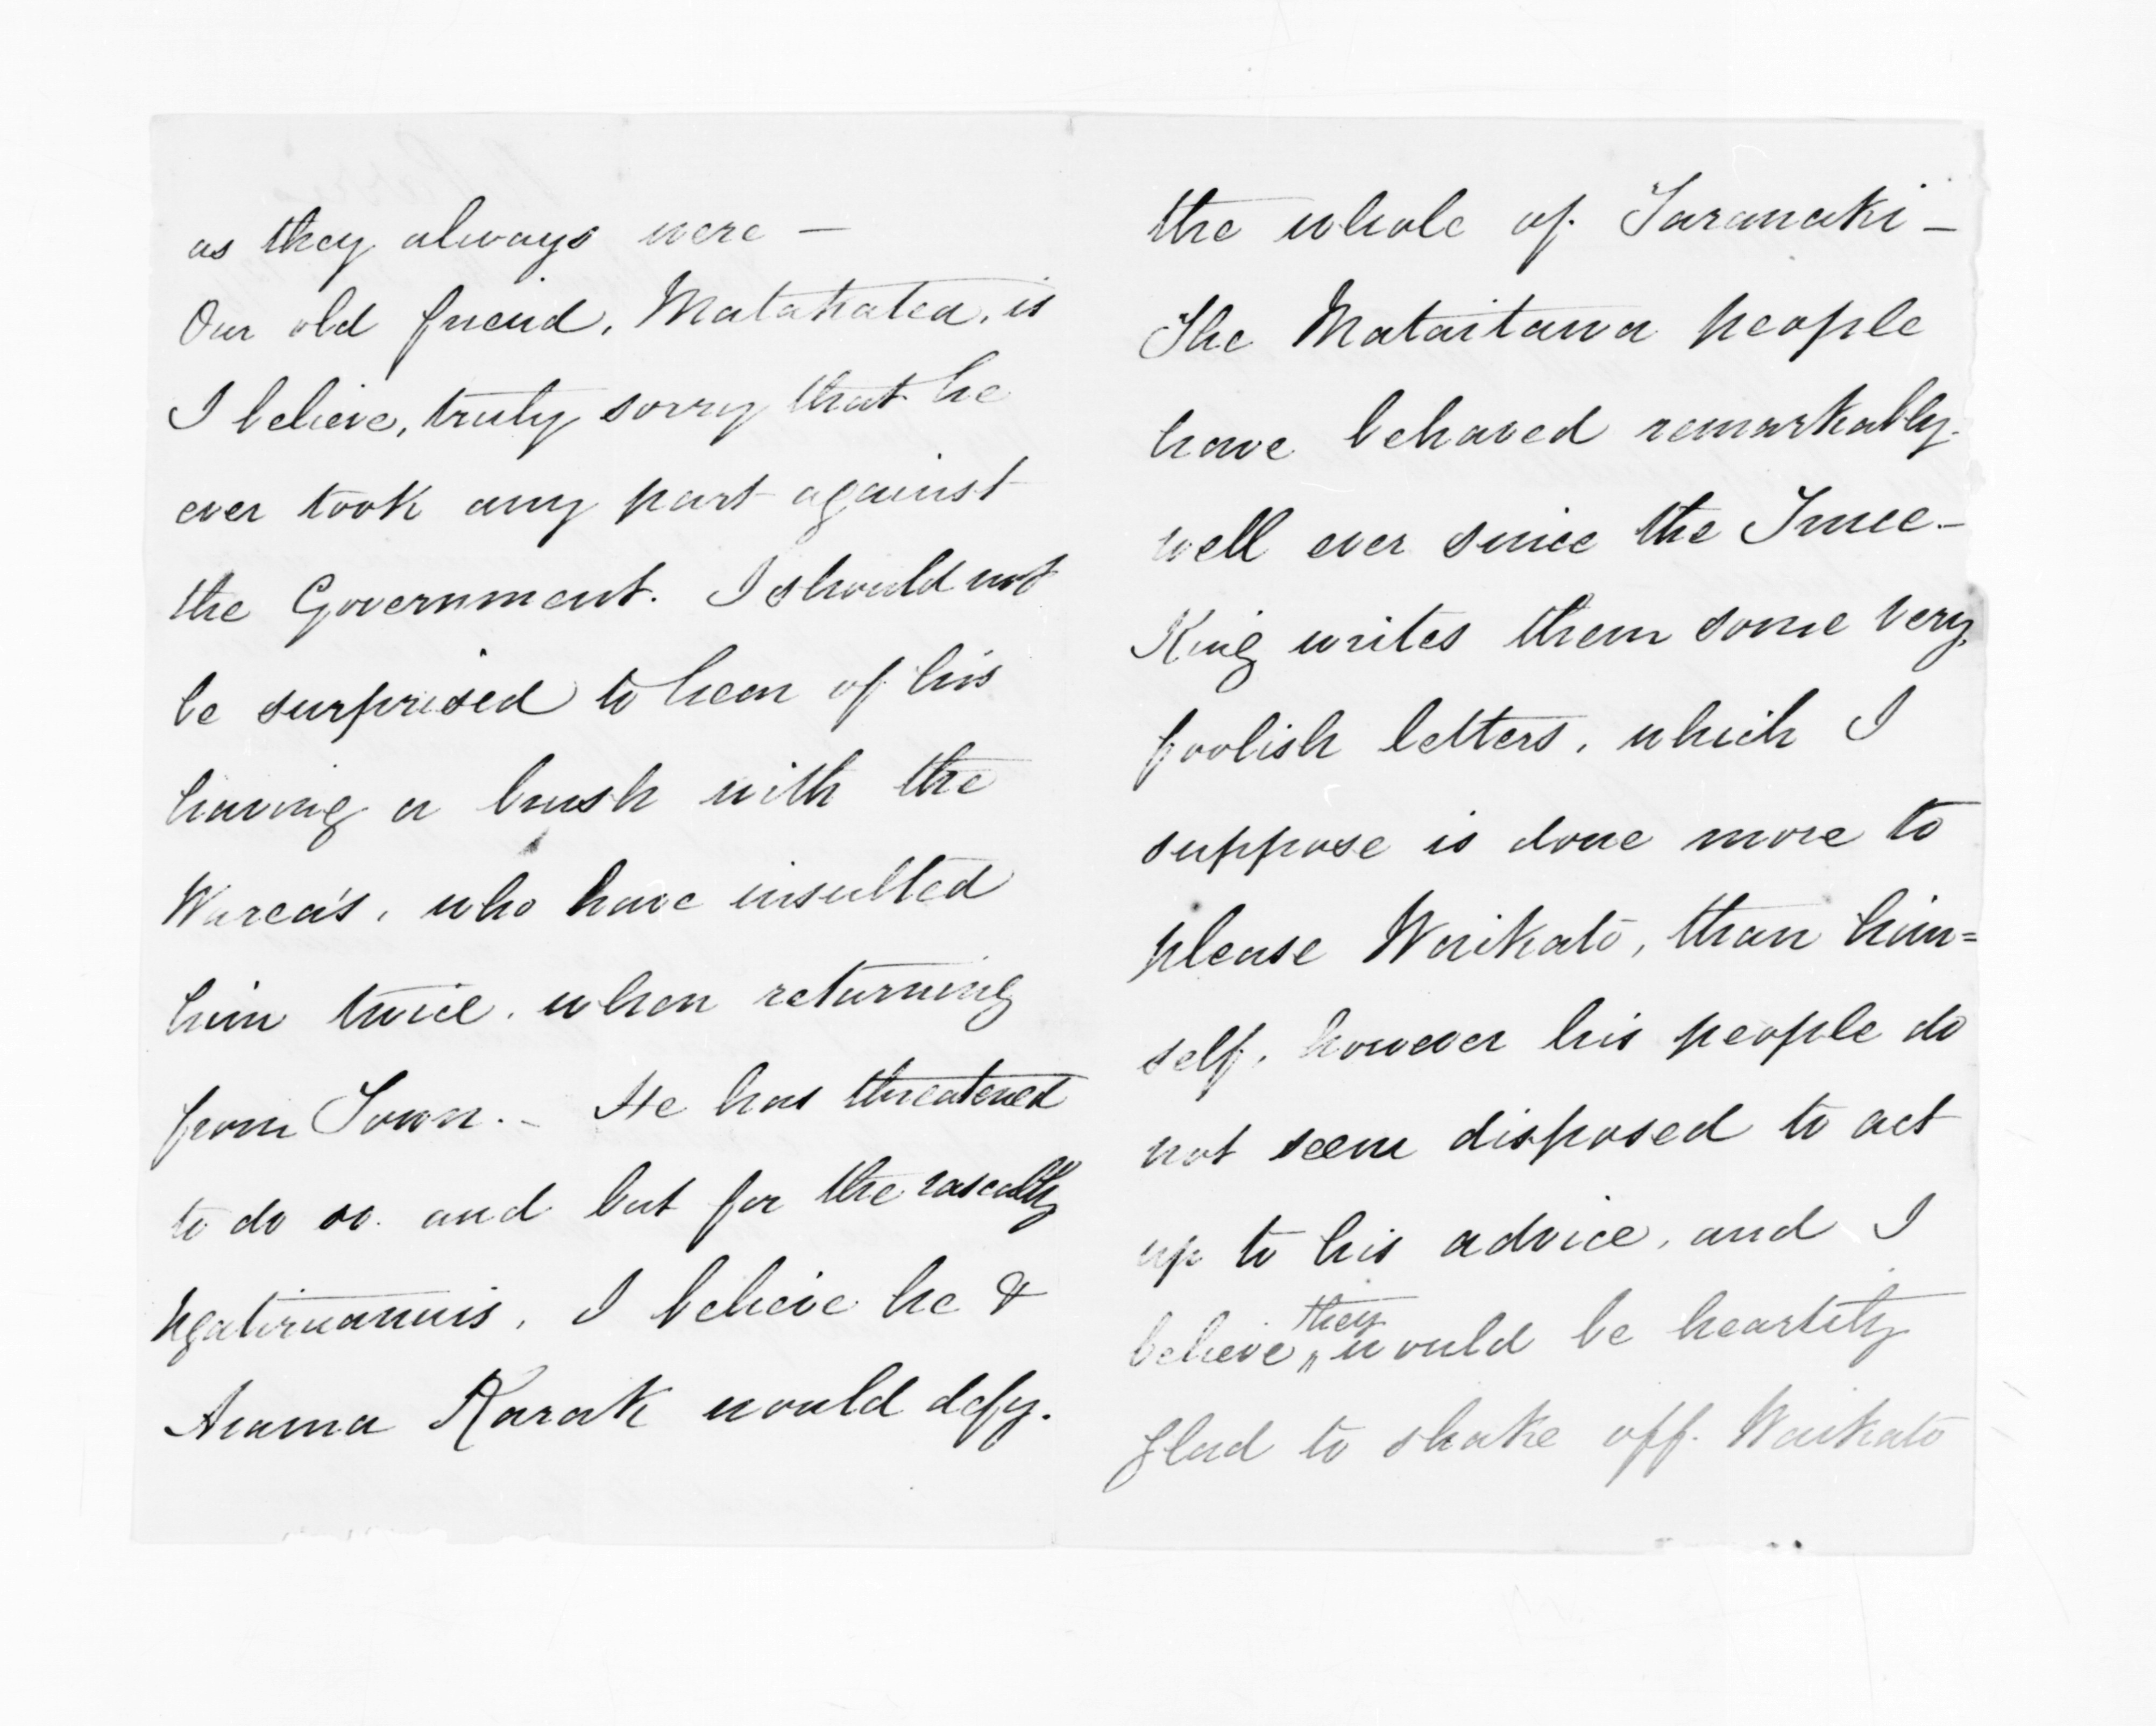 as they always were —
Our old friend, Matakatea, is
I believe, truly sorry that he
ever took any part against
the Government. I should not
be surprised to hear of his
having a brush with the
Warea's, who have insulted
him twice, when returning
from Town. - He has threatened
to do so. and but for the rascally
Ngatiruanuis, I believe he &
Arama Karak would defy.
the whole of Taranaki -
The Mataitawa people
have behaved remarkably
well ever since the Truce -
King writes them some very
foolish letters, which I
suppose is done more to
please Waikato, than him=
self, however his people do
not seem disposed to act
up to his advice, and I
believe they would be heartily
glad to shake off Waikato